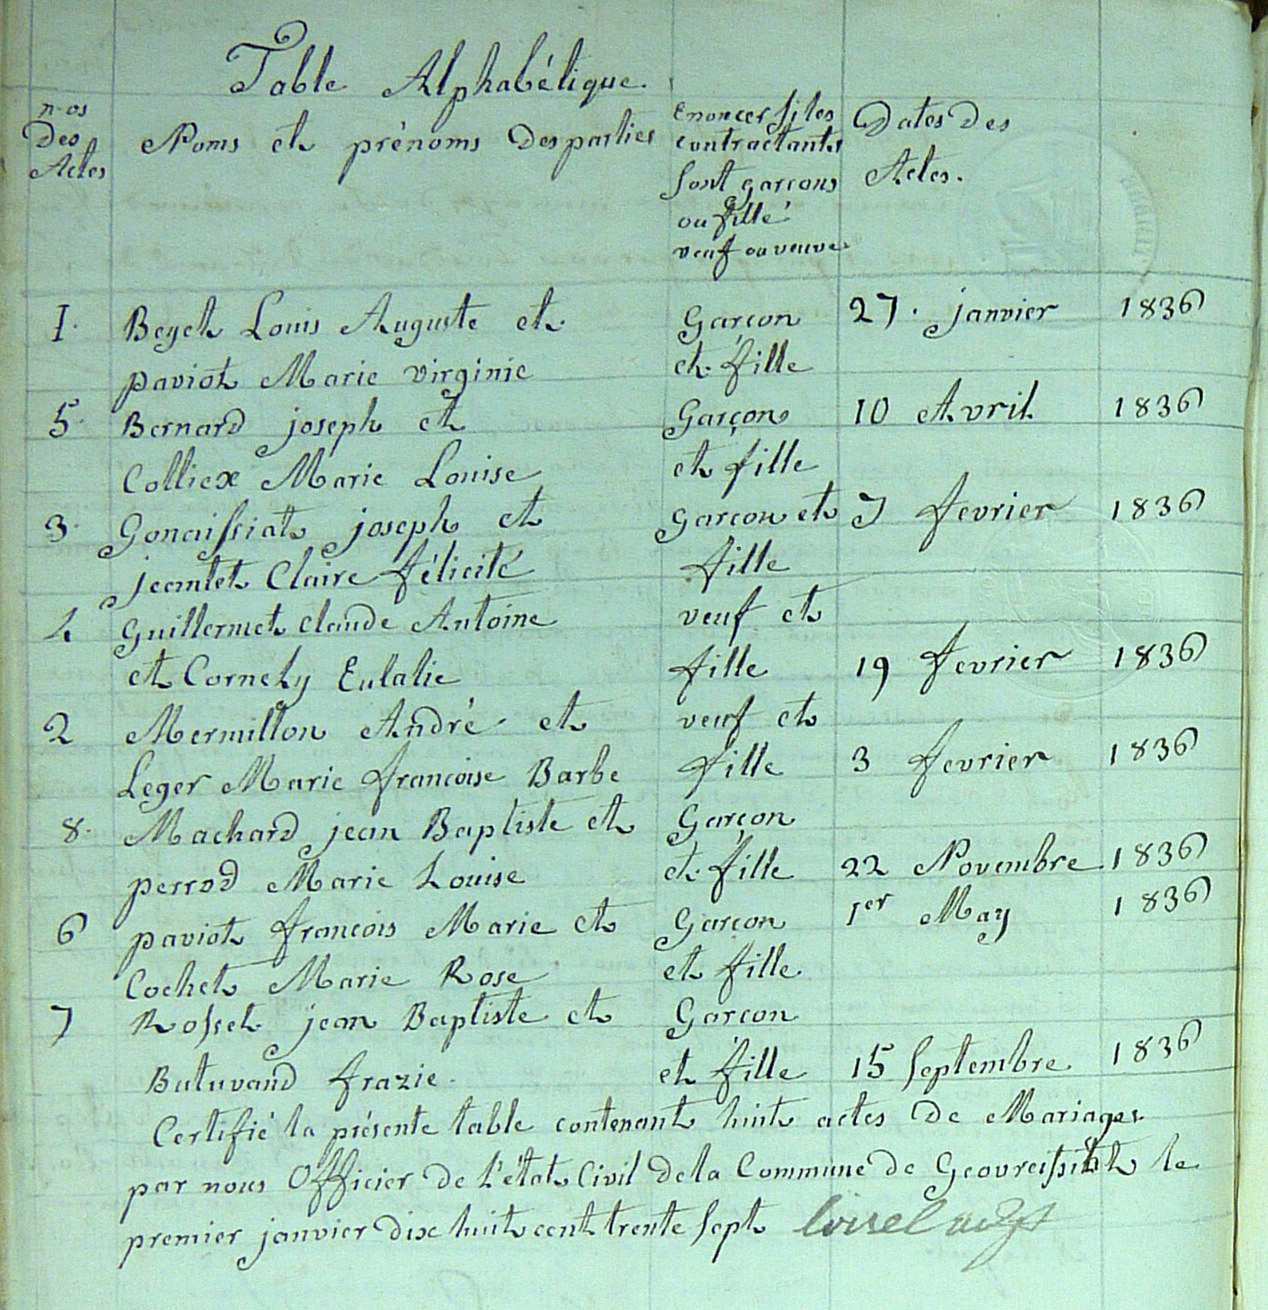 Table Alphabétique.
n.os
Des
Actes
Noms et prénoms Des parties
Enoncer si les
contractants
sont garçons
ou fille
veuf ou veuve.
Dates Des
Actes.
1. Beget Louis Auguste et Garçon 27. janvier 1836
paviot Marie virginie et fille
5. Bernard joseph et Garçon 10 Avril 1836
Colliex Marie Louise et fille
3. Gonaissiat joseph et Garçon et 7 fevrier 1836
jeantet Claire félicité fille
4 Guillermet Claude Antoine veuf et
et Cornely Eulalie fille 19 fevrier 1836
2 Mermillon André et veuf et
Leger Marie francoise Barbe fille 3 fevrier 1836
8. Machard jean Baptiste et Garçon
perrod Marie Louise et fille 22 Novembre 1836
6 paviot francois Marie et Garcon 1er May 1836
Cochet Marie Rose et fille
7 Rosset jean Baptiste et Garcon
Butuvand frazie. et fille 15 Septembre 1836
Certifié la présente table contenant huit actes de Mariages
par nous Officier de l'état Civil de la Commune de Geovreissiat le
premier janvier dix huit cent trente sept